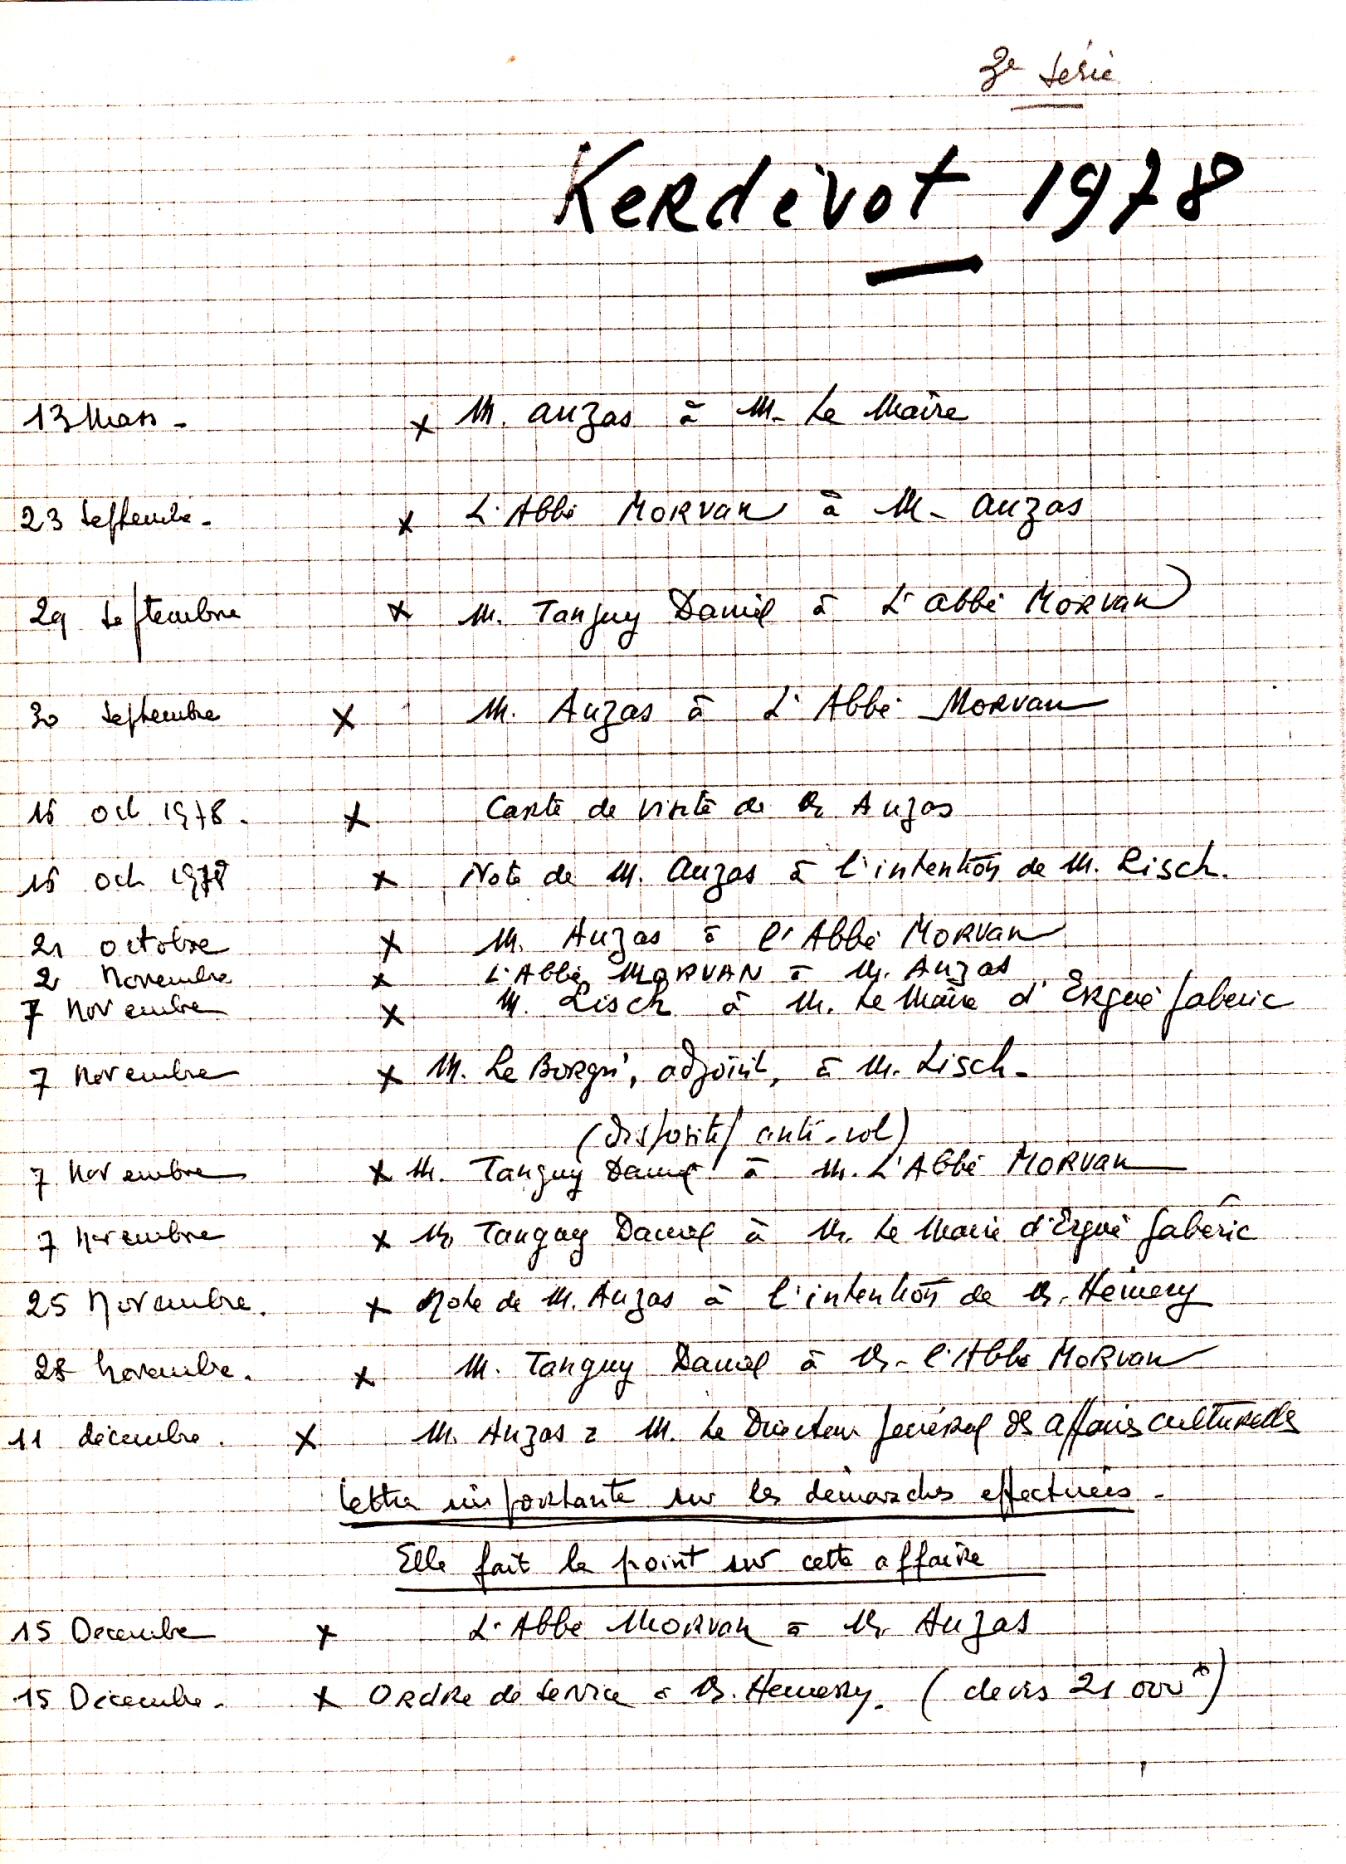 3e série
Kerdévot 1978
13 Mars - x M. Auzas à M. Le Maire
23 Septembre - x L'Abbé MORVAN à M. Auzas
29 Septembre x M. Tanguy Daniel à L'abbé MORVAN
30 Septembre x M. Auzas à L'Abbé MORVAN
16 oct 1978. x Carte de visite de M. Auzas
16 oct 1978 x Note de M. Auzas à l'intention de M. Lisch.
21 octobre x M. Auzas à l'Abbé MORVAN
2 Novembre x L'Abbé MORVAN à M. Auzas
7 Novembre x M. Lisch à M. Le Maire d'Ergué Gabéric
7 Novembre x M. Le Borgn', adjoint, à M. Lisch.
(Dispositif anti-vol)
7 Novembre x M. Tanguy Daniel à M. L'Abbé MORVAN
7 Novembre x M. Tanguy Daniel à M. Le Maire d'Ergué Gabéric
25 Novembre. x Note de M. Auzas à l'intention de M. Hémery
28 Novembre. x M. Tanguy Daniel à M. l'Abbé MORVAN
11 décembre. x M. Auzas à M. Le Directeur général des affaires culturelles
lettre importante sur les démarches effectuées -
Elle fait le point sur cette affaire
15 Décembre x L'Abbé MORVAN à M. Auzas
15 Décembre. x Ordre de service à M. Hémery. (devis 21 000 )